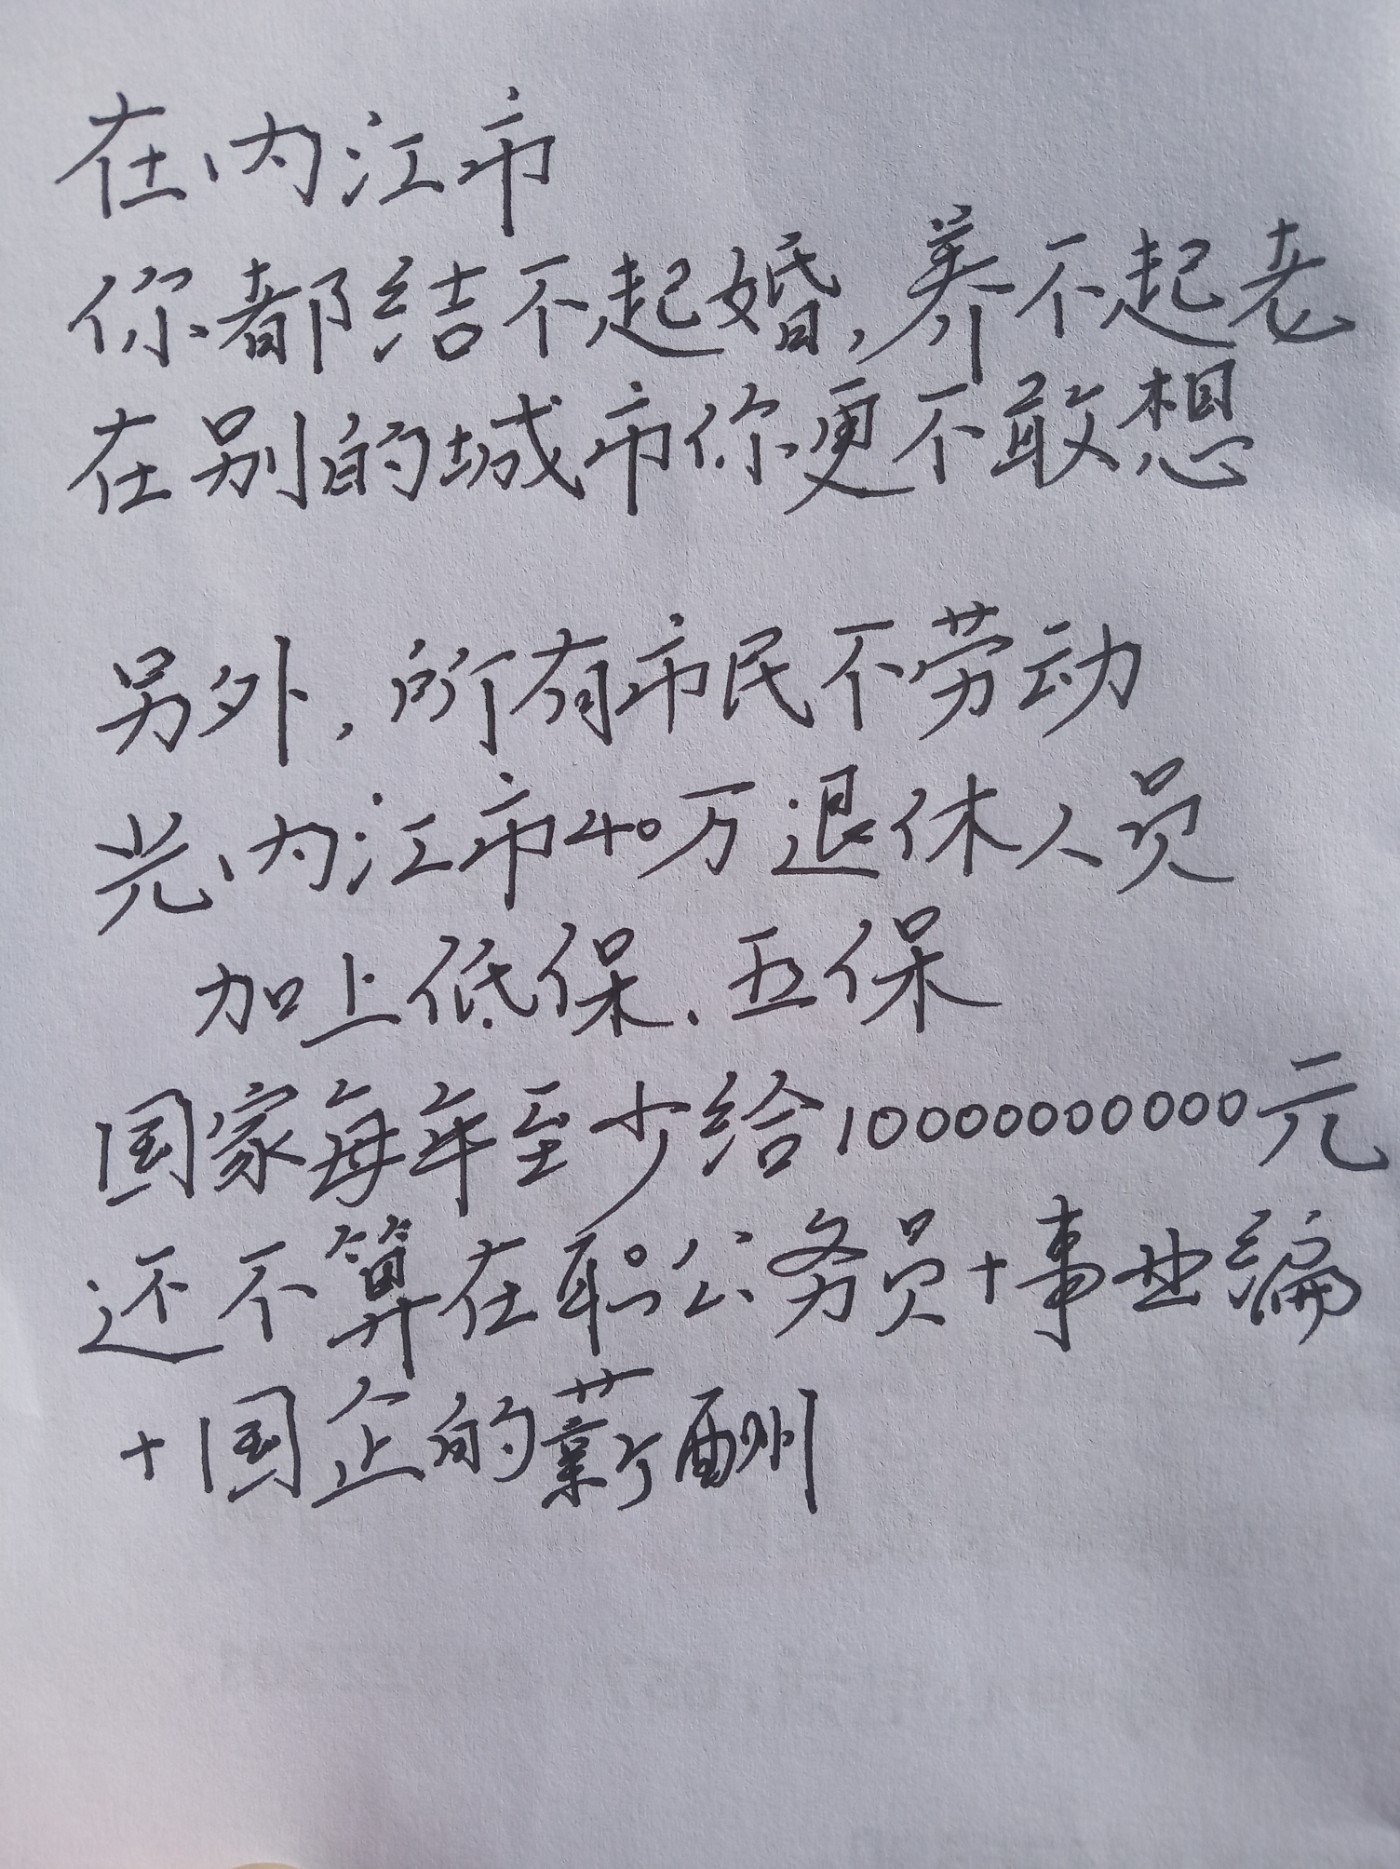 在内江市
你都结不起婚,养不起老
在别的城市你更不敢想
另外,所有市民不劳动
光内江市40万退休人员
加上低保、五保
国家每年至少给10000000000元
还不算在职公务员+事业编
+国企的薪酬